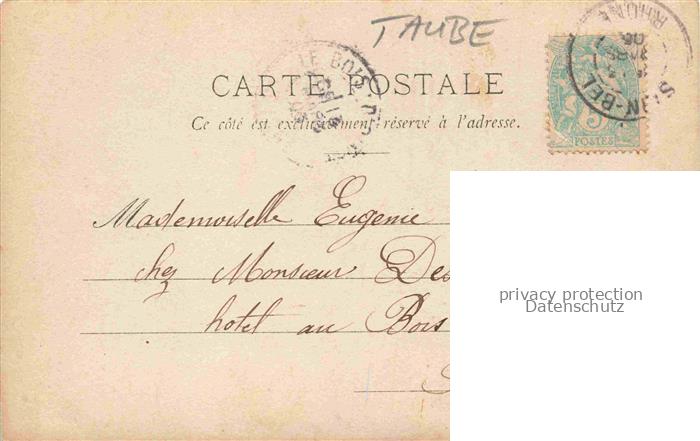 TAUBE
CARTE POSTALE
Ce côté est exclusivement réservé à l'adresse.
LE BOIS-D'
RHONE
S IN-BEL
5
POSTES
Mademoiselle Eugenie
chez Monsieur Des
hotel au Bois
privacy protection
Datenschutz